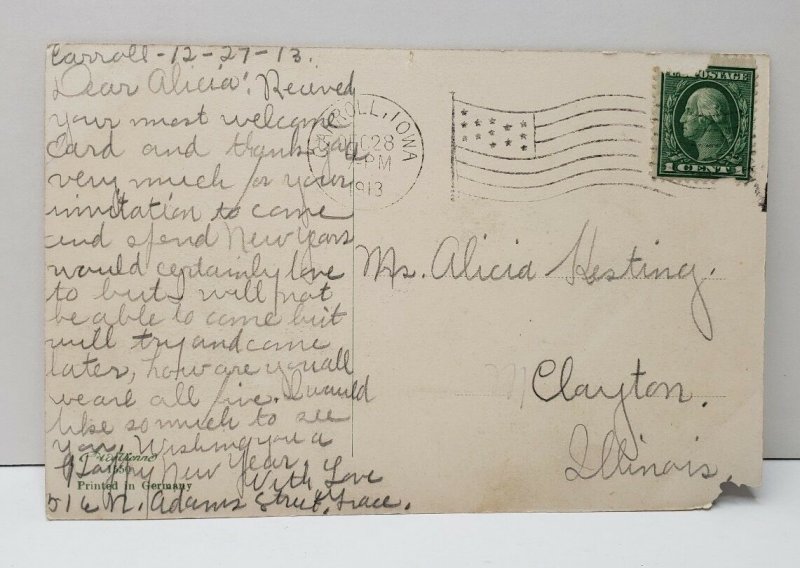 Carroll-12-27-13.
Dear Alicia: Recived
your most welcome
Card and thank you
very much for your
invitation to come
and spend New Years
would certainly love
to but I will not
be able to come but
will try and come
later, how are you all
we are all fine. I would
like so much to see
you. Wishing you a
Happy New Year
With Love
516 N. Adams Street, Grace.
Printed in Germany
CARROLL, IOWA
DEC 28
PM
1913
POSTAGE
1 CENT 1
Ms. Alicia Hesting.
Clayton.
Illinois.